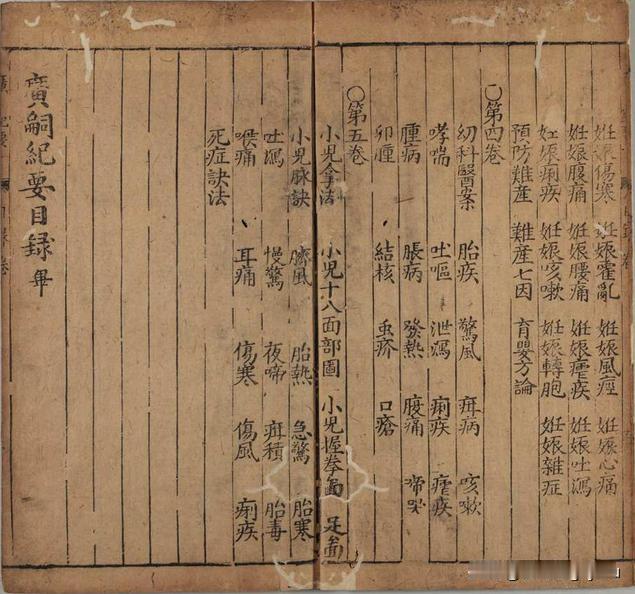 妊娠傷寒 妊娠霍亂 妊娠風痙 妊娠心痛
妊娠腹痛 妊娠腰痛 妊娠瘧疾 妊娠吐瀉
妊娠痢疾 妊娠咳嗽 妊娠轉胞 妊娠雜症
預防難產 難產七因 育嬰方論
○第四卷
幼科醫案 胎疾 驚風 疳病 咳嗽
哮喘 吐嘔 泄瀉 痢疾 瘧疾
腫病 脹病 發熱 腹痛 啼哭
卵腫 結核 虫疥 口瘡
○第五卷
小児拿法 小児十八面部圖 小児握拳面 足面
小児脉訣 臍風 胎熱 急驚 胎寒
吐瀉 慢驚 夜啼 疳積 胎毒
喉痛 耳痛 傷寒 傷風 痢疾
死症訣法
廣嗣紀要目録畢